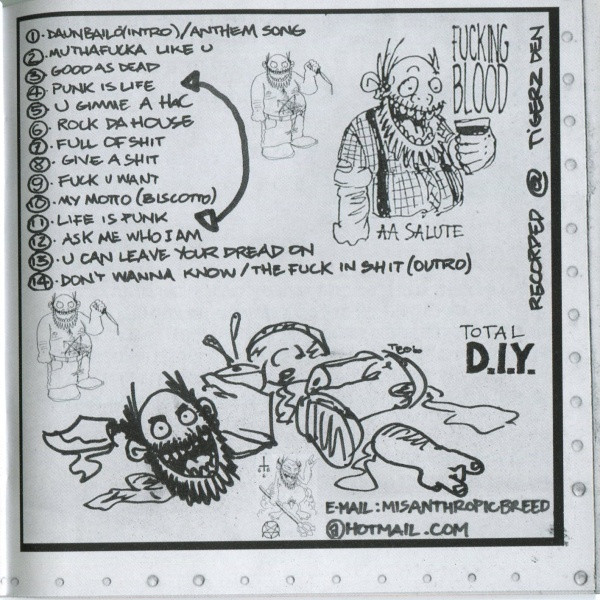 1. DAUNBAILÓ(INTRO)/ANTHEM SONG
2. MUTHAFUCKA LIKE U
3. GOOD AS DEAD
4. PUNK IS LIFE
5. U GIMME A HaC
6. ROCK DA HOUSE
7. FULL OF SHIT
8. GIVE A SHIT
9. FUCK U WANT
10. MY MOTTO (BISCOTTO)
11. LIFE IS PUNK
12. ASK ME WHO I AM
13. U CAN LEAVE YOUR DREAD ON
14. DON'T WANNA KNOW / THE FUCK IN SHIT (OUTRO)
FUCKING
BLOOD
AA SALUTE
RECORDED @ TIGERZ DEN
TOTAL
D.I.Y.
E-MAIL: MISANTHROPICBREED
@HOTMAIL.COM